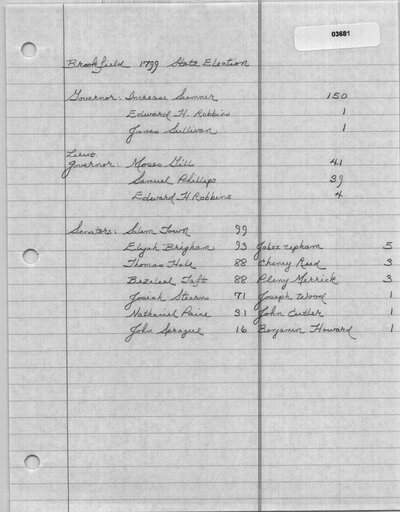 03681
Brookfield 1799 State Election
Governor: Increase Sumner 150
Edward H. Robbins 1
James Sullivan 1
Lieut.
Governor: Moses Gill 41
Samuel Phillips 39
Edward H Robbins 4
Senators: Salem Town 99
Elijah Brigham 93 Jabez Upham 5
Thomas Hale 88 Cheney Reed 3
Bezaleel Taft 88 Pliny Merrick 3
Josiah Stearns 71 Joseph Wood 1
Nathaniel Paine 31 John Cutler 1
John Sprague 16 Benjamin Howard 1